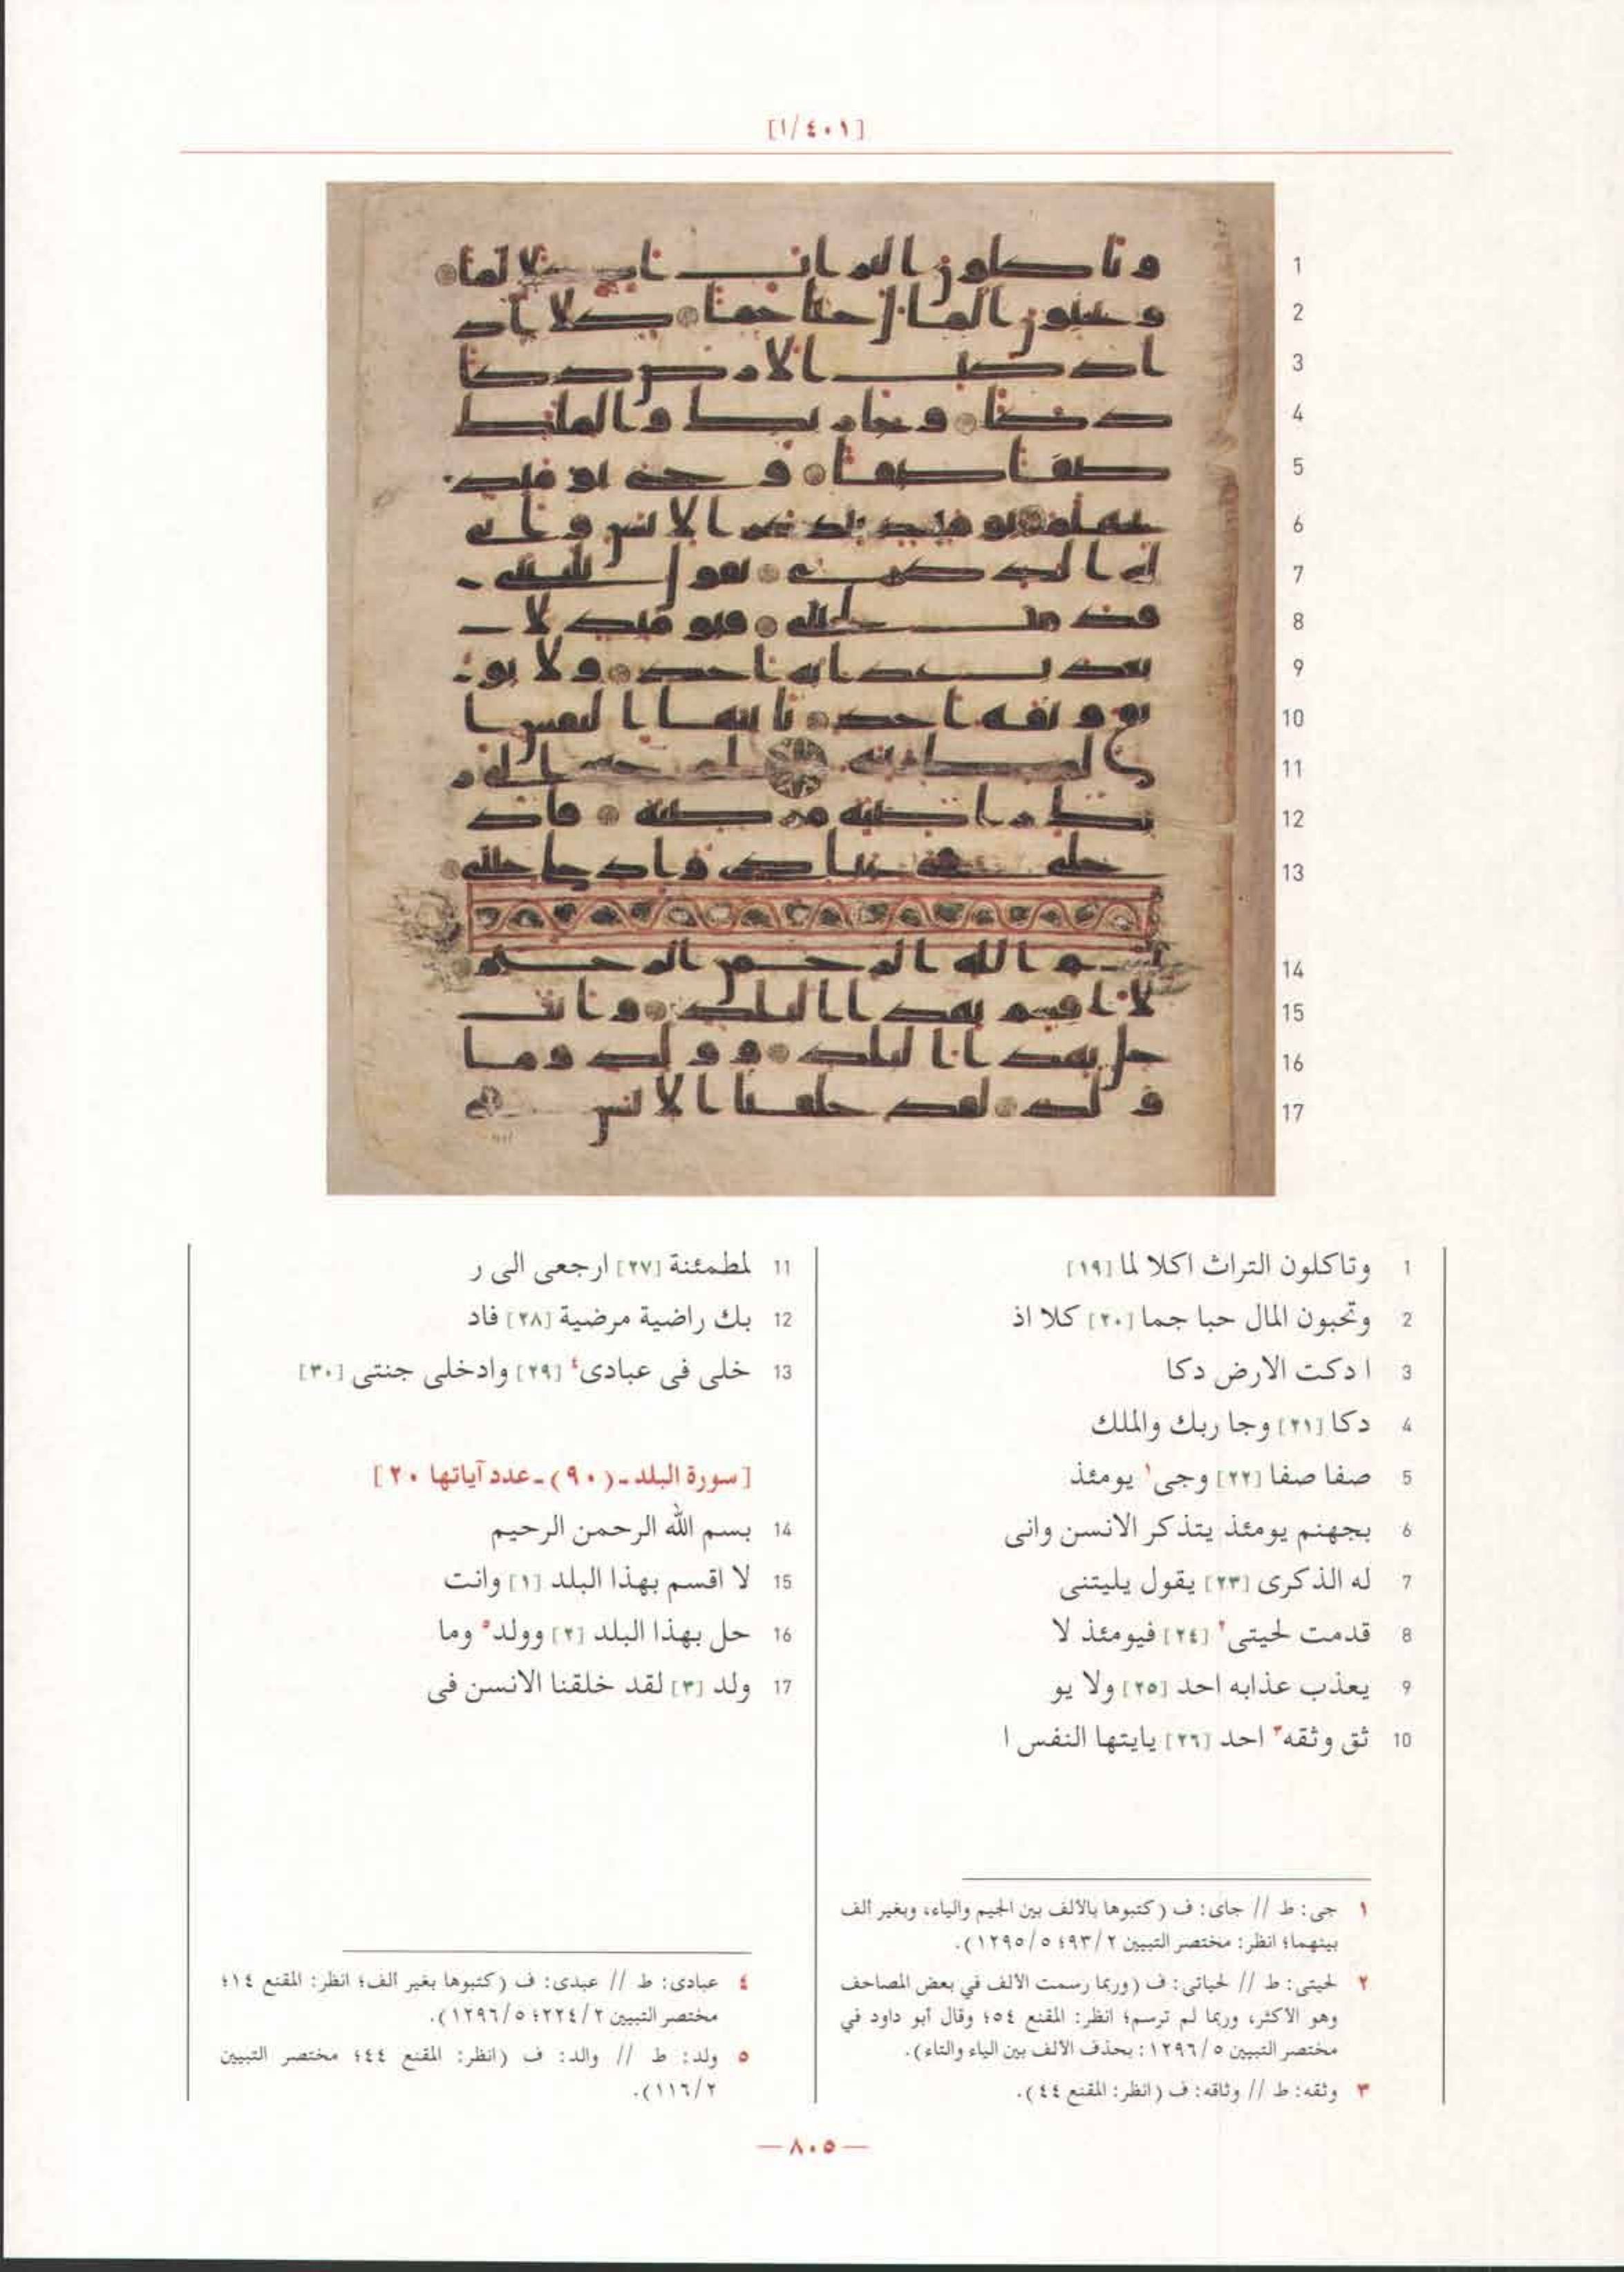 [١/٤٠١]
1 وتاكلون التراث اكلا لما [١٩]
2 وتحبون المال حبا جما [٢٠] كلا اذ
3 ا دكت الارض دكا
4 دكا [٢١] وجا ربك والملك
5 صفا صفا [٢٢] وجى١ يومئذ
6 بجهنم يومئذ يتذكر الانسن وانى
7 له الذكرى [٢٣] يقول يليتنى
8 قدمت لحيتى٢ [٢٤] فيومئذ لا
9 يعذب عذابه احد [٢٥] ولا يو
10 ثق وثقه٣ احد [٢٦] يايتها النفس ا
11 لمطمئنة [٢٧] ارجعى الى ر
12 بك راضية مرضية [٢٨] فاد
13 خلى فى عبادى٤ [٢٩] وادخلى جنتى [٣٠]
[سورة البلد ـ (٩٠) ـ عدد آياتها ٢٠]
14 بسم الله الرحمن الرحيم
15 لا اقسم بهذا البلد [١] وانت
16 حل بهذا البلد [٢] وولد٥ وما
17 ولد [٣] لقد خلقنا الانسن فى
١ جى: ط // جاى: ف (كتبوها بالألف بين الجيم والياء، وبغير ألف
بينهما؛ انظر: مختصر التبيين ٢/٩٣؛ ٥/١٢٩٥).
٢ لحيتى: ط // لحياتى: ف (وربما رسمت الألف في بعض المصاحف
وهو الأكثر، وربما لم ترسم؛ انظر: المقنع ٥٤؛ وقال أبو داود في
مختصر التبيين ٥/١٢٩٦: بحذف الألف بين الياء والتاء).
٣ وثقه: ط // وثاقه: ف (انظر: المقنع ٤٤).
٤ عبادى: ط // عبدى: ف (كتبوها بغير ألف؛ انظر: المقنع ١٤؛
مختصر التبيين ٢/٢٢٤؛ ٥/١٢٩٦).
٥ ولد: ط // والد: ف (انظر: المقنع ٤٤؛ مختصر التبيين
٢/١١٦).
— ٨٠٥ —